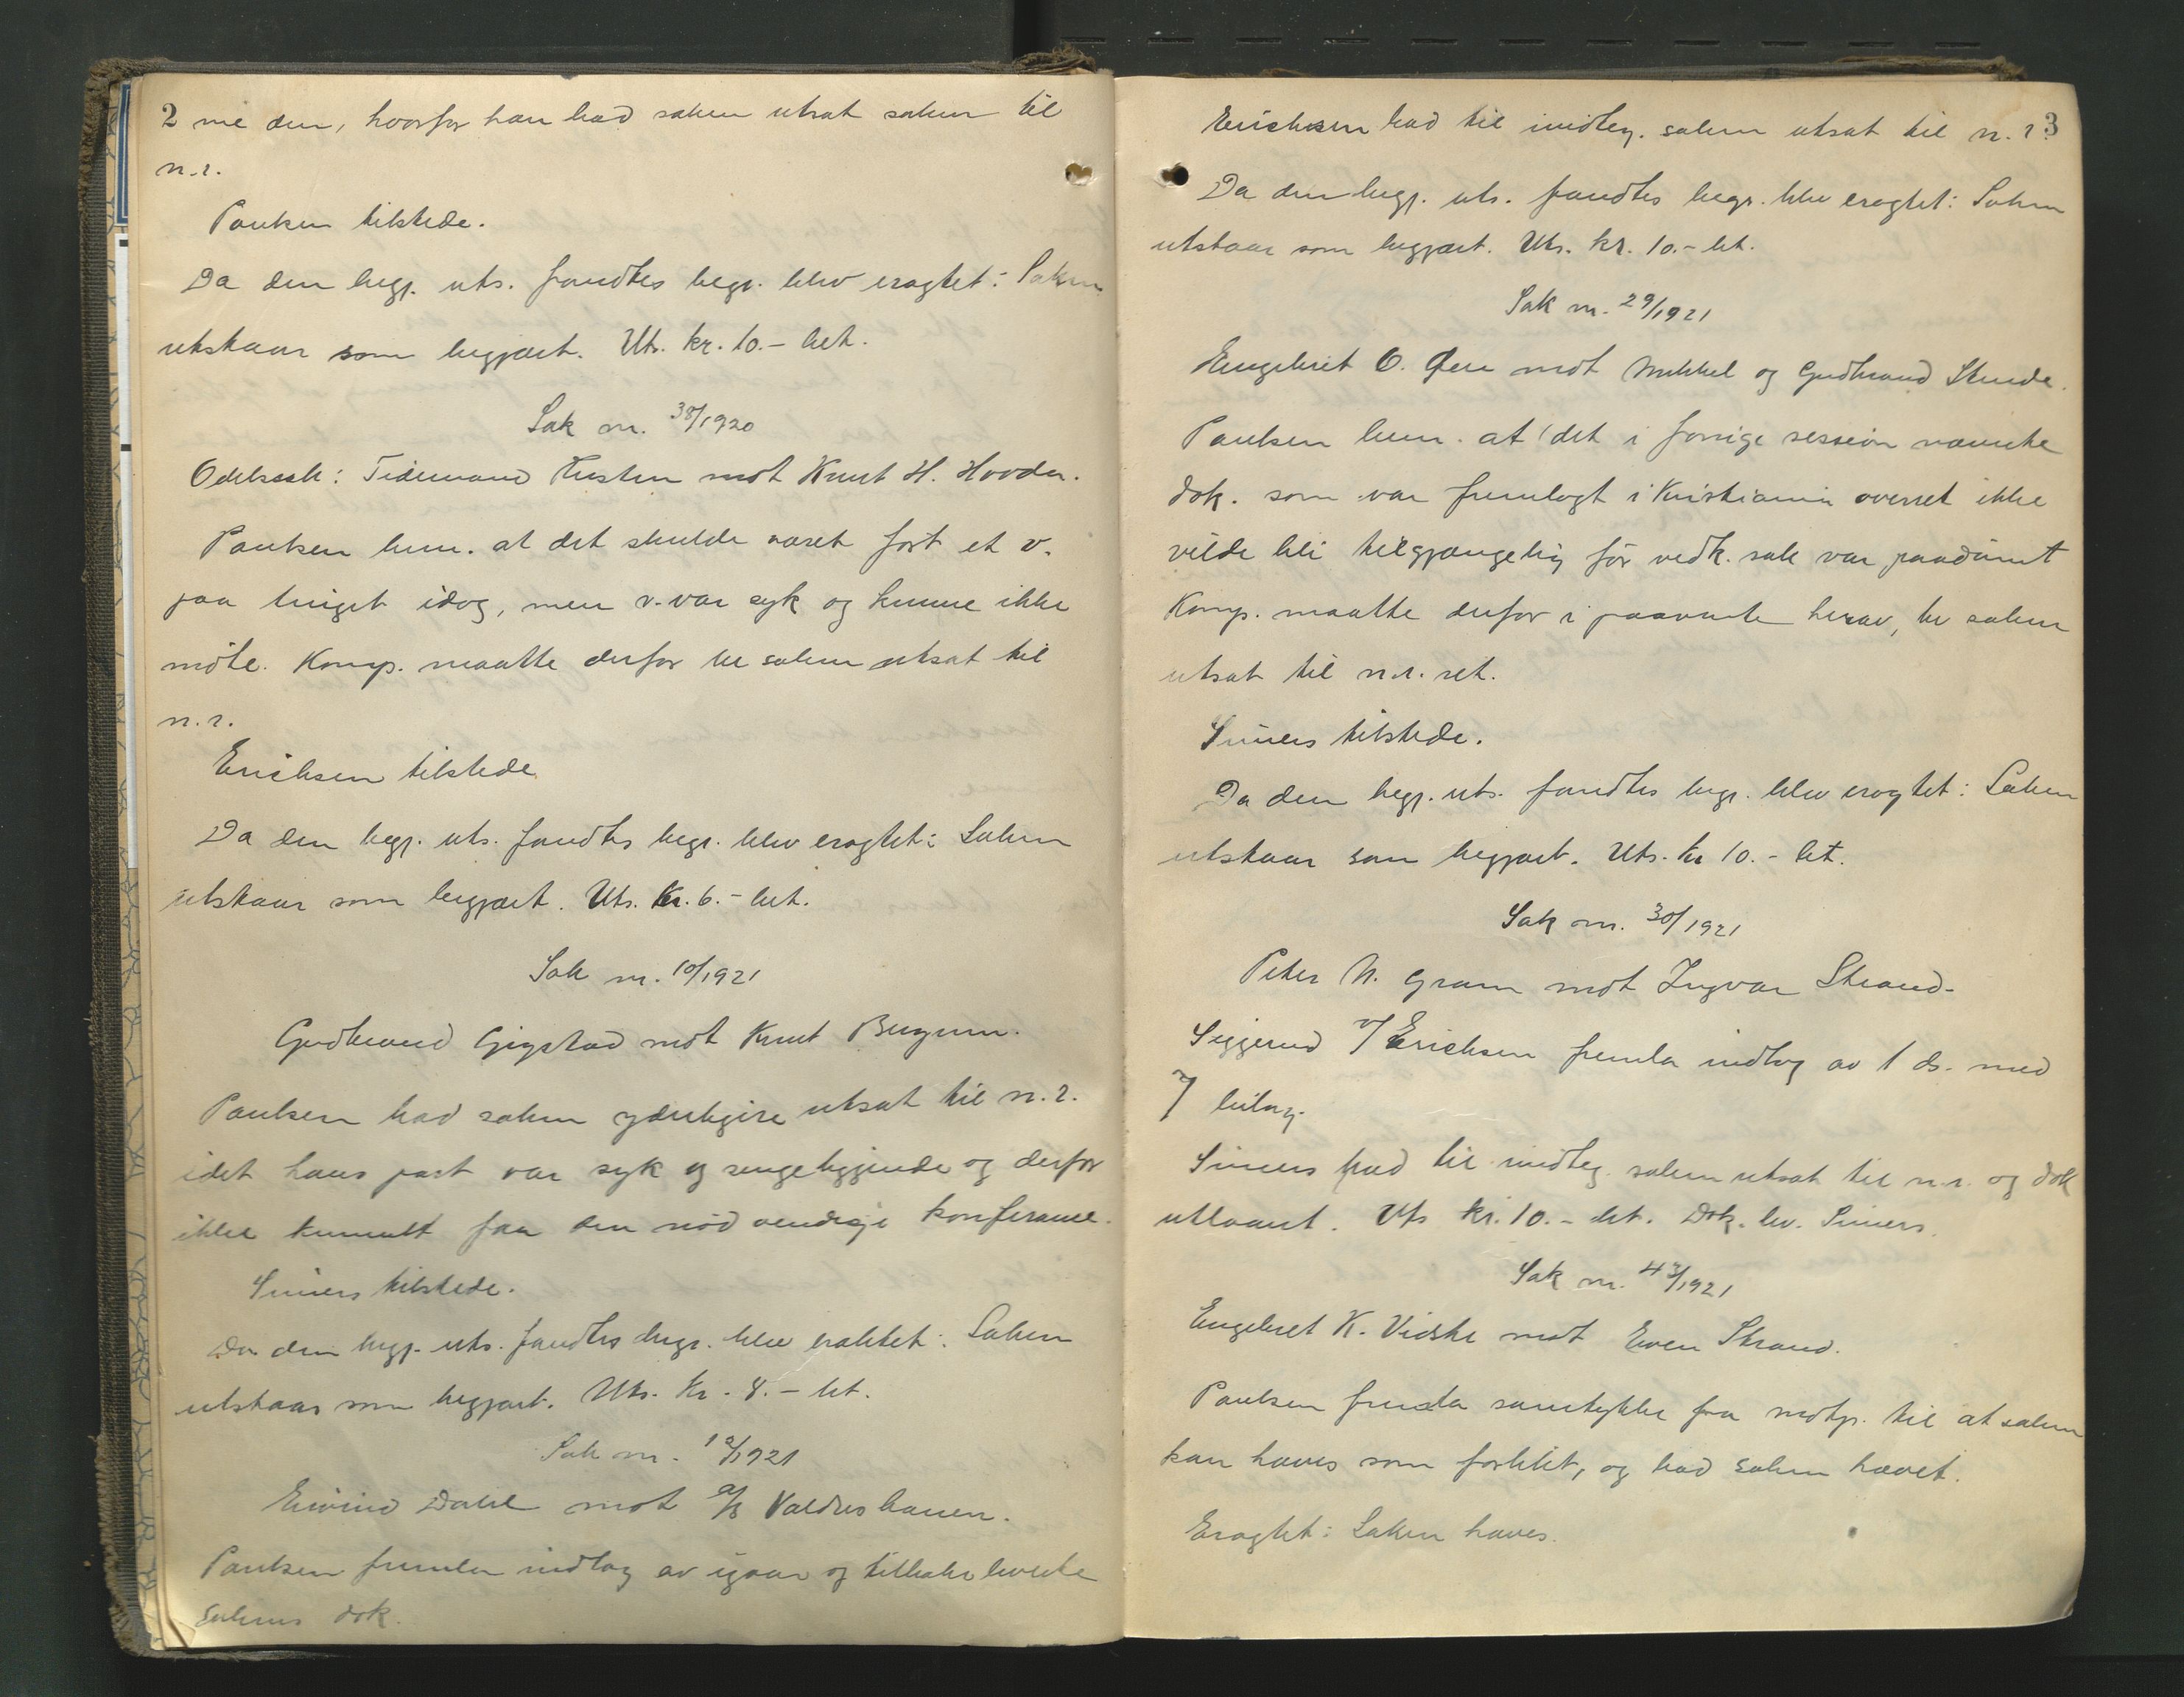 2 me den, hvorfor han bad saken utsat saken til
n.r.
Paulsen tilstede.
Da den begj. uts. fandtes begr. blev eragtet: Saken
utstaar som begjært. Uts. kr. 10.- bet.
Sak nr. 38/1920
Odelssak: Tidemand Hesten mot Knut H. Hovda.
Paulsen bem. at det skulde været ført et v.
paa tinget idag, men v. var syk og kunne ikke
møte. Komp. maatte derfor be saken utsat til
n.r.
Erichsen tilstede.
Da den begj. uts. fandtes begr. blev eragtet: Saken
utstaar som begjært. Uts. kr. 6.- bet.
Sak nr. 10/1921
Gudbrand Gigstad mot Knut
Paulsen bad saken yderligere utsat til n.r.
idet hans part var syk og sengeliggende og derfor
ikke kunnet faa den nødvendige konferanse.
Siniers tilstede.
Da den begj. uts. fandtes begr. blev eraktet: Saken
utstaar som begjært. Uts. kr. 8.- bet.
Sak nr. 12/1921
Eivind Dahl mot A/S Valdresbanen.
Paulsen fremla indlæg av igaar og tilbakeleverte
sakens dok.
Erichsen bad til imøteg. saken utsat til n.r. 3
Da den begj. uts. fandtes begr. blev eragtet: Saken
utstaar som begjært. Uts. kr. 10.- bet.
Sak nr. 29/1921
Engebret O. Øen mot Mikkel og Gudbrand Skinde.
Paulsen bem. at det i forrige session nævnte
dok. som var fremlagt i Kristiania overret ikke
vilde bli tilgjængelig før vedk. sak var paadømt
Komp. maatte derfor i paavente herav, be saken
utsat til n.r. ret.
Siniers tilstede.
Da den begj. uts. fandtes begr. blev eragtet: Saken
utstaar som begjært. Uts. kr 10.- bet.
Sak nr. 30/1921
Peter N. Gram mot Ingvar Strand.
Siggerud v/ Erichsen fremla indlæg av 1 ds. med
7 bilag.
Siniers bad til imøteg. saken utsat til n.r. og dok
utlaant. Uts kr. 10.- bet. Dok. lev. Siniers.
Sak nr. 43/1921
Engebret K. Vidste mot Even Strand.
Paulsen fremla samtykke fra motp. til at saken
kan hæves som forlikt, og bad saken hævet.
Eragtet: Saken hæves.